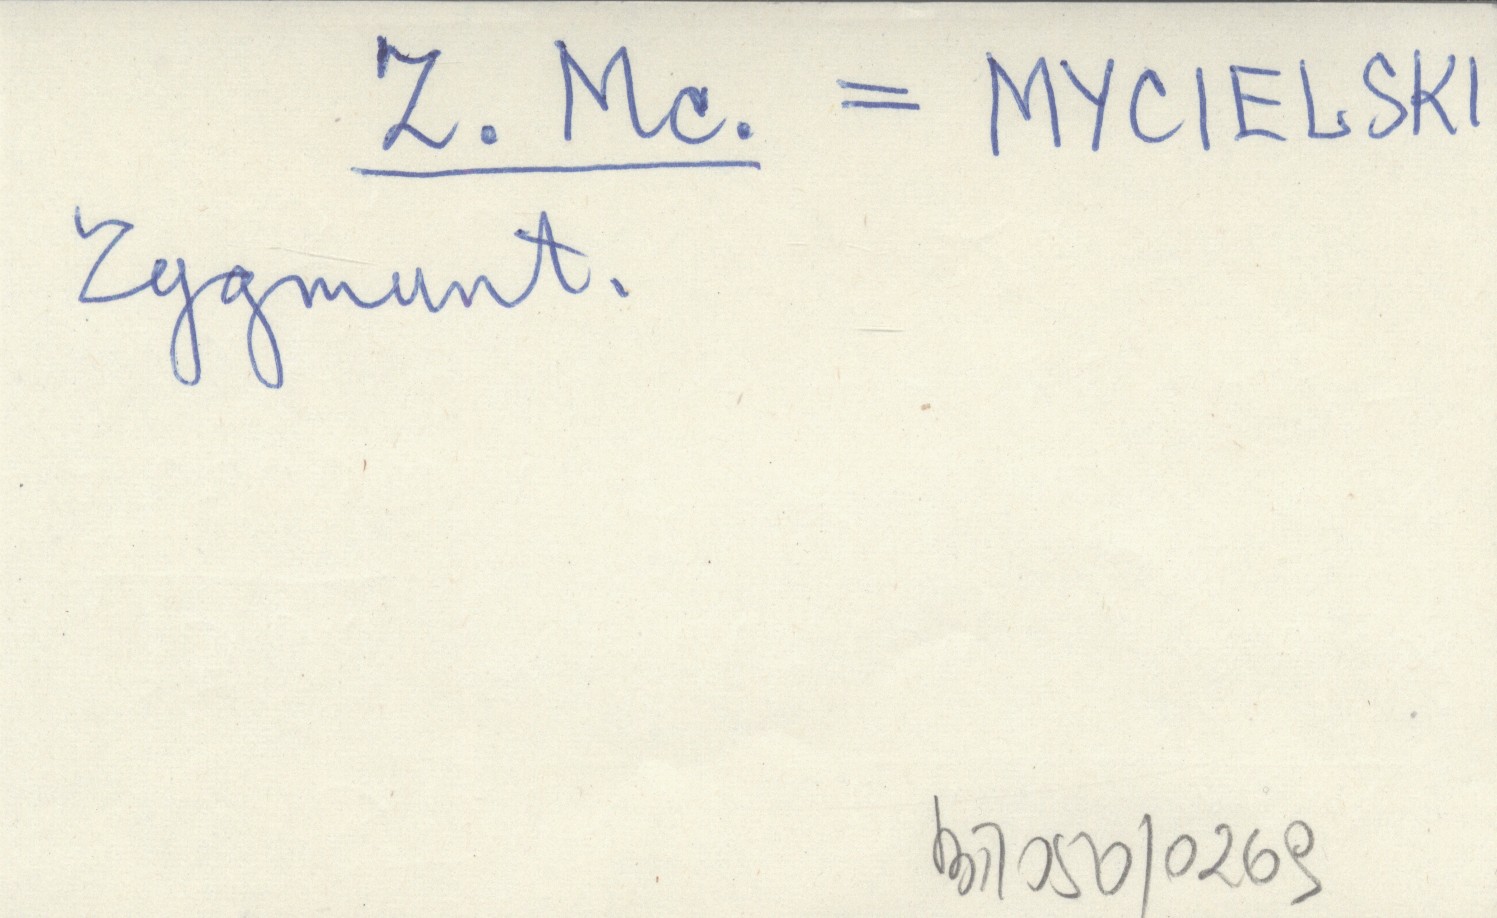 Z. Mc. = MYCIELSKI
Zygmunt.
050/0269